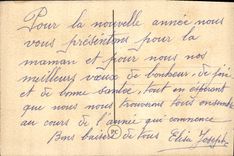 Pour la nouvelle année nous
vous présentons pour la
maman et pour nous nos
meilleurs vœux de bonheur, de joie
et de bonne santé, tout en espérant
que nous nous trouverons tous ensemble
au cours de l'année qui commence
Bons baisers de tous Elisa Joseph